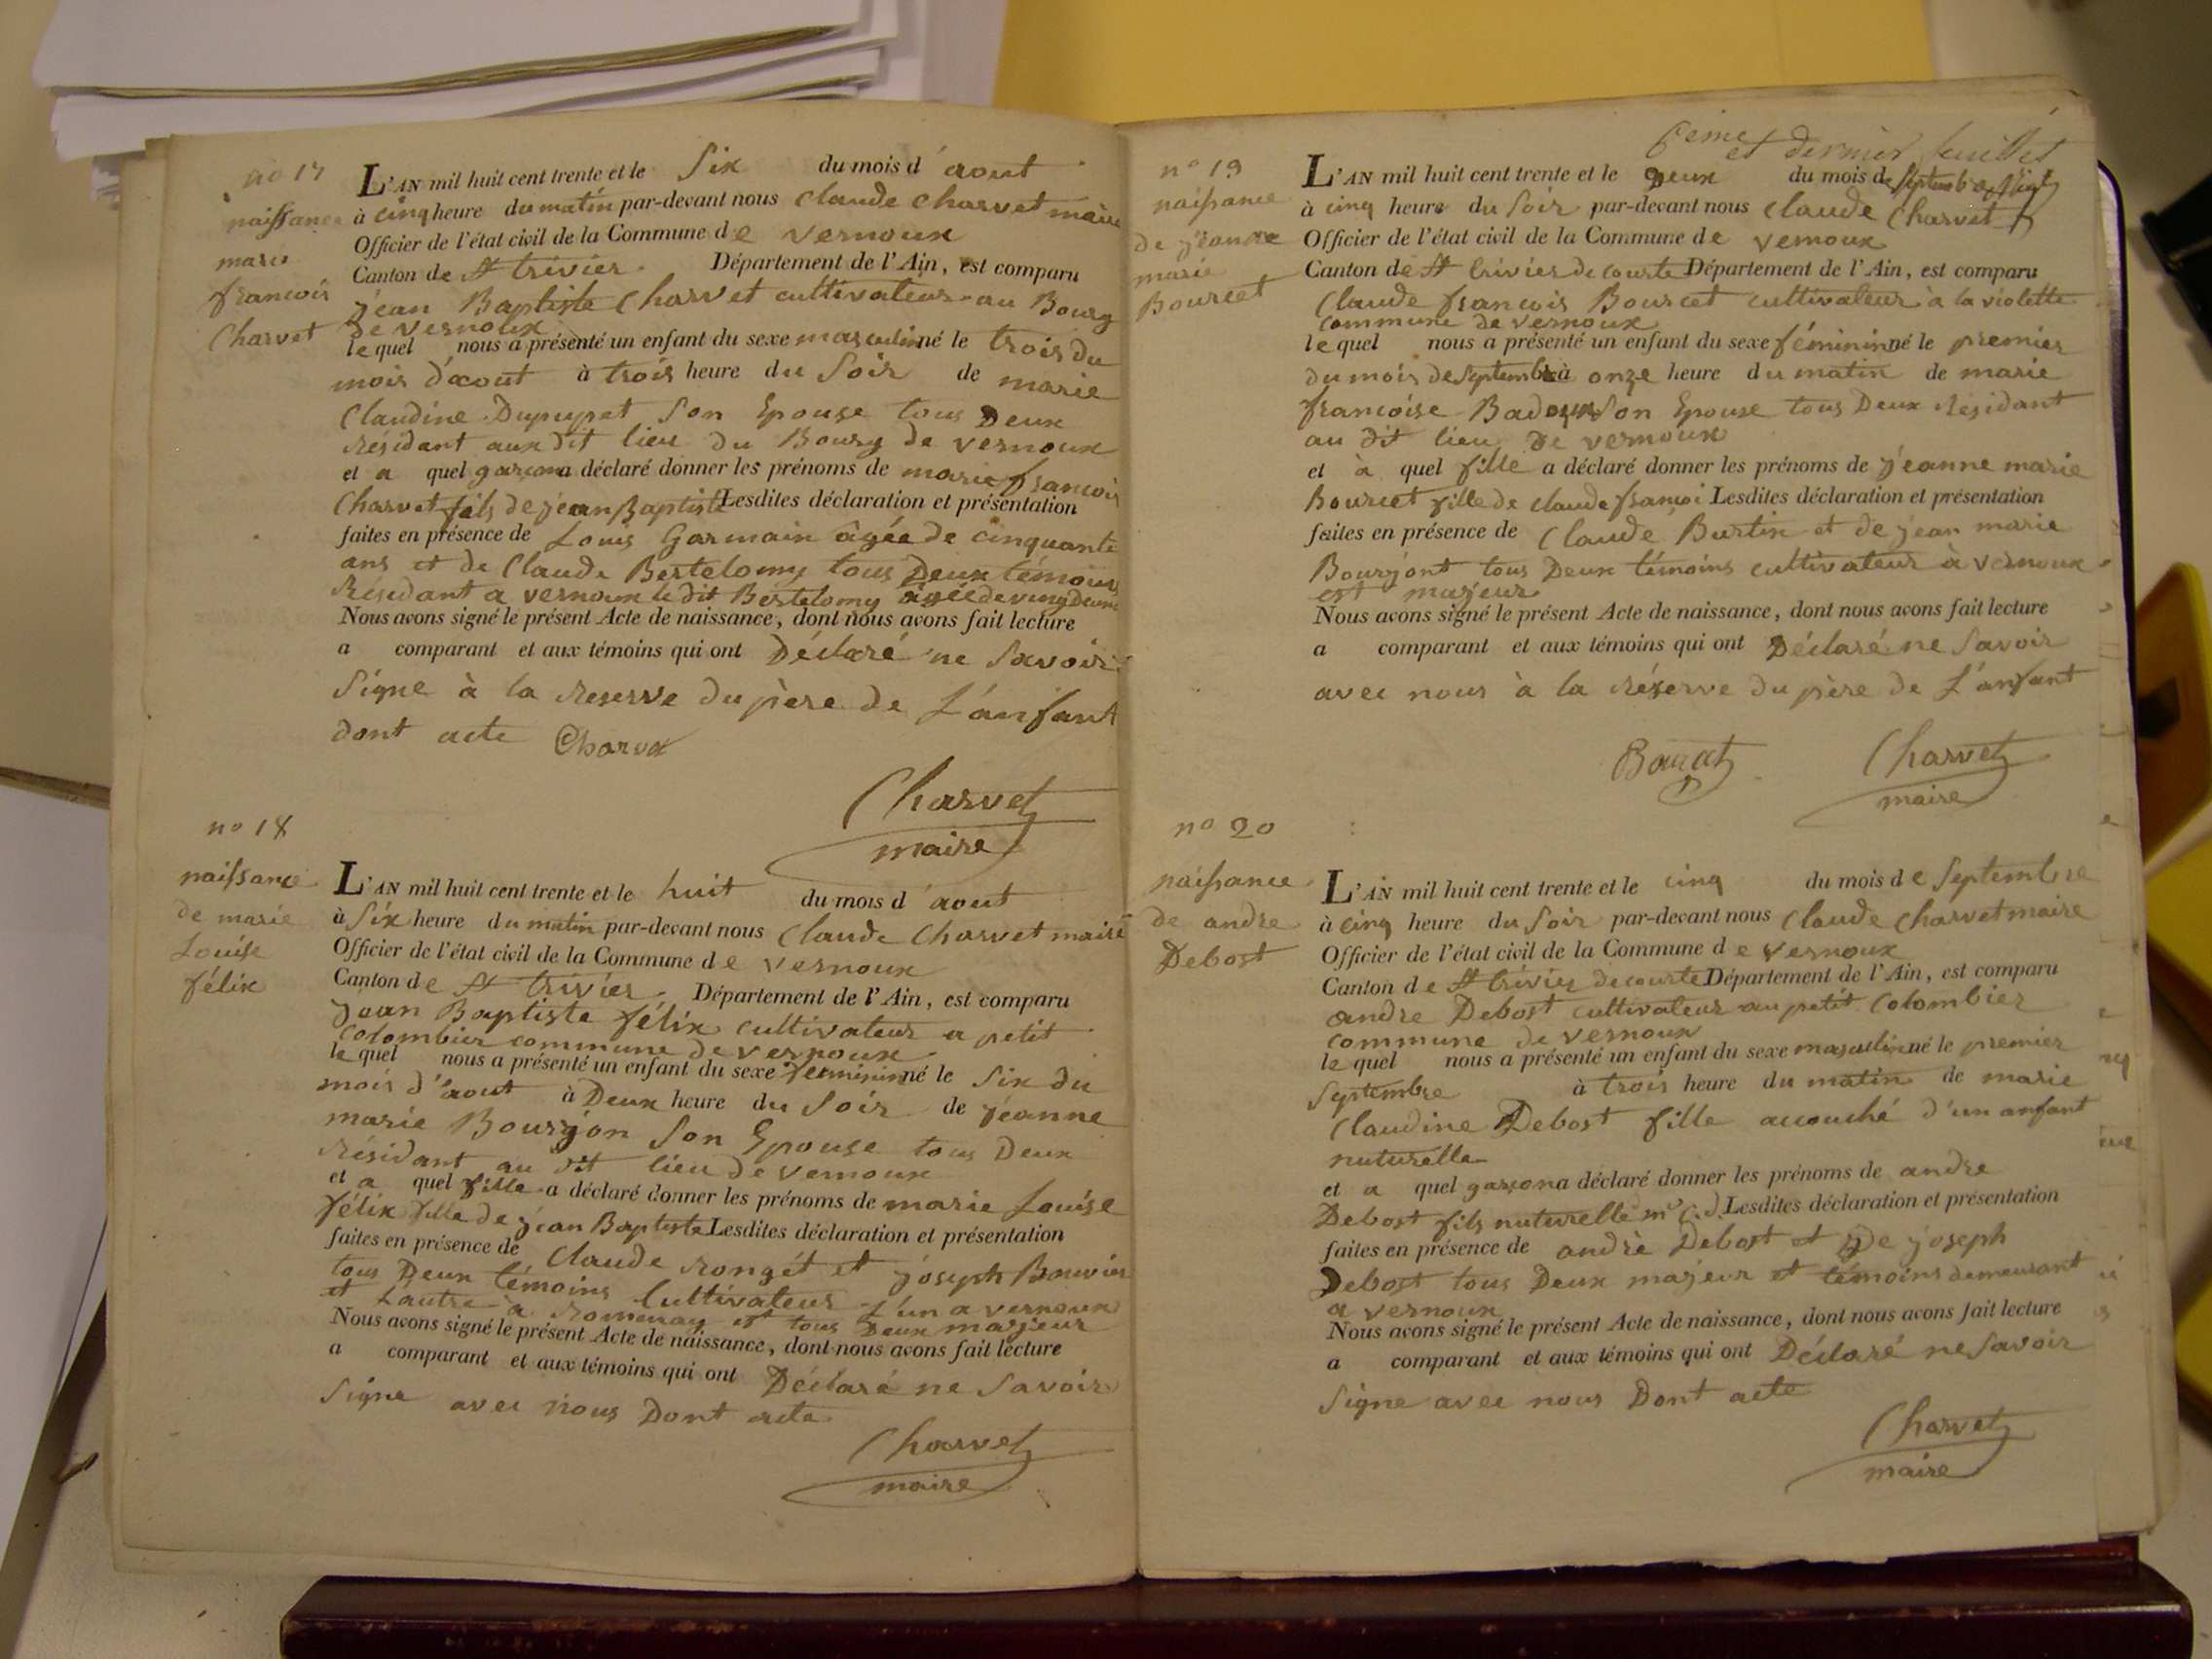 no 17
naissance
marie
francois
Charvet
L'AN mil huit cent trente et le Six du mois d'aout
à cinq heure du matin par-devant nous Claude Charvet maire
Officier de l'état civil de la Commune de vernoux
Canton de St trivier Département de l'Ain, est comparu
jean Baptiste Charvet cultivateur au Bourg
de vernoux
lequel nous a présenté un enfant du sexe masculin né le trois du
mois d'aout à trois heure du Soir de marie
Claudine Dupupet Son Epouse tous Deux
Résidant aux dit lieu du Bourg de vernoux
et a quel garcon a déclaré donner les prénoms de marie francois
Charvet fils de jean Baptiste Lesdites déclaration et présentation
faites en présence de Louis Garmain âgée de cinquante
ans et de Claude Bertelomy tous Deux témoins
Résidant a vernoux le dit Bertelomy âgée de vingt Deux
Nous avons signé le présent Acte de naissance, dont nous avons fait lecture
a comparant et aux témoins qui ont Déclaré ne Savoir
Signe à la Reserve du père de L'anfant
dont acte Charvet
Charvet
maire
no 18
naissance
de marie
Louise
félix
L'AN mil huit cent trente et le huit du mois d'aout
à Six heure du matin par-devant nous Claude Charvet maire
Officier de l'état civil de la Commune de vernoux
Canton de St trivier Département de l'Ain, est comparu
jean Baptiste félix cultivateur a petit
Colombier commune de vernoux
lequel nous a présenté un enfant du sexe feminin né le Six du
mois d'aout à Deux heure du Soir de jeanne
marie Bourgon Son Epouse tous Deux
Résidant au dit lieu de vernoux
et a quel fille a déclaré donner les prénoms de marie Louise
félix fille de jean Baptiste Lesdites déclaration et présentation
faites en présence de Claude Rongét et joseph Bouvier
tous Deux témoins Cultivateur L'un a vernoux
et Lautre a Romenay et tous Deux marjeur
Nous avons signé le présent Acte de naissance, dont nous avons fait lecture
a comparant et aux témoins qui ont Déclaré ne Savoir
Signe avec nous Dont acte
Charvet
maire
6eme et dernier feuillet
no 19
naissance
de jeanne
marie
Bourcet
L'AN mil huit cent trente et le Deux du mois de Septembre
à cinq heure du Soir par-devant nous Claude Charvet
Officier de l'état civil de la Commune de vernoux
Canton de St trivier de courte Département de l'Ain, est comparu
Claude francois Bourcet cultivateur à la violette
commune de vernoux
lequel nous a présenté un enfant du sexe féminin né le premier
du mois de Septembre à onze heure du matin de marie
francoise Son Epouse tous Deux Résidant
au dit lieu de vernoux
et à quel fille a déclaré donner les prénoms de jeanne marie
Bourcet fille de claude francoi Lesdites déclaration et présentation
faites en présence de Claude Burtin et de jean marie
Bourjont tous Deux témoins cultivateur à vernoux
est majeur
Nous avons signé le présent Acte de naissance, dont nous avons fait lecture
a comparant et aux témoins qui ont Déclaré ne Savoir
avec nous à la réserve du père de L'anfant
Charvet
maire
no 20
naissance
de andre
Debost
L'AN mil huit cent trente et le cinq du mois de Septembre
à cinq heure du Soir par-devant nous Claude Charvet maire
Officier de l'état civil de la Commune de vernoux
Canton de St trivier de courte Département de l'Ain, est comparu
andre Debost cultivateur au petit Colombier
commune de vernoux
lequel nous a présenté un enfant du sexe masculin né le premier
Septembre à trois heure du matin de marie
Claudine Debost fille accouché d'un anfant
naturelle
et a quel garcon a déclaré donner les prénoms de andre
Debost fils naturelle m C.d. Lesdites déclaration et présentation
faites en présence de andrè Debost et De joseph
Debost tous Deux majeur et témoins demeurant
a vernoux
Nous avons signé le présent Acte de naissance, dont nous avons fait lecture
a comparant et aux témoins qui ont Déclaré ne Savoir
Signe avec nous Dont acte
Charvet
maire